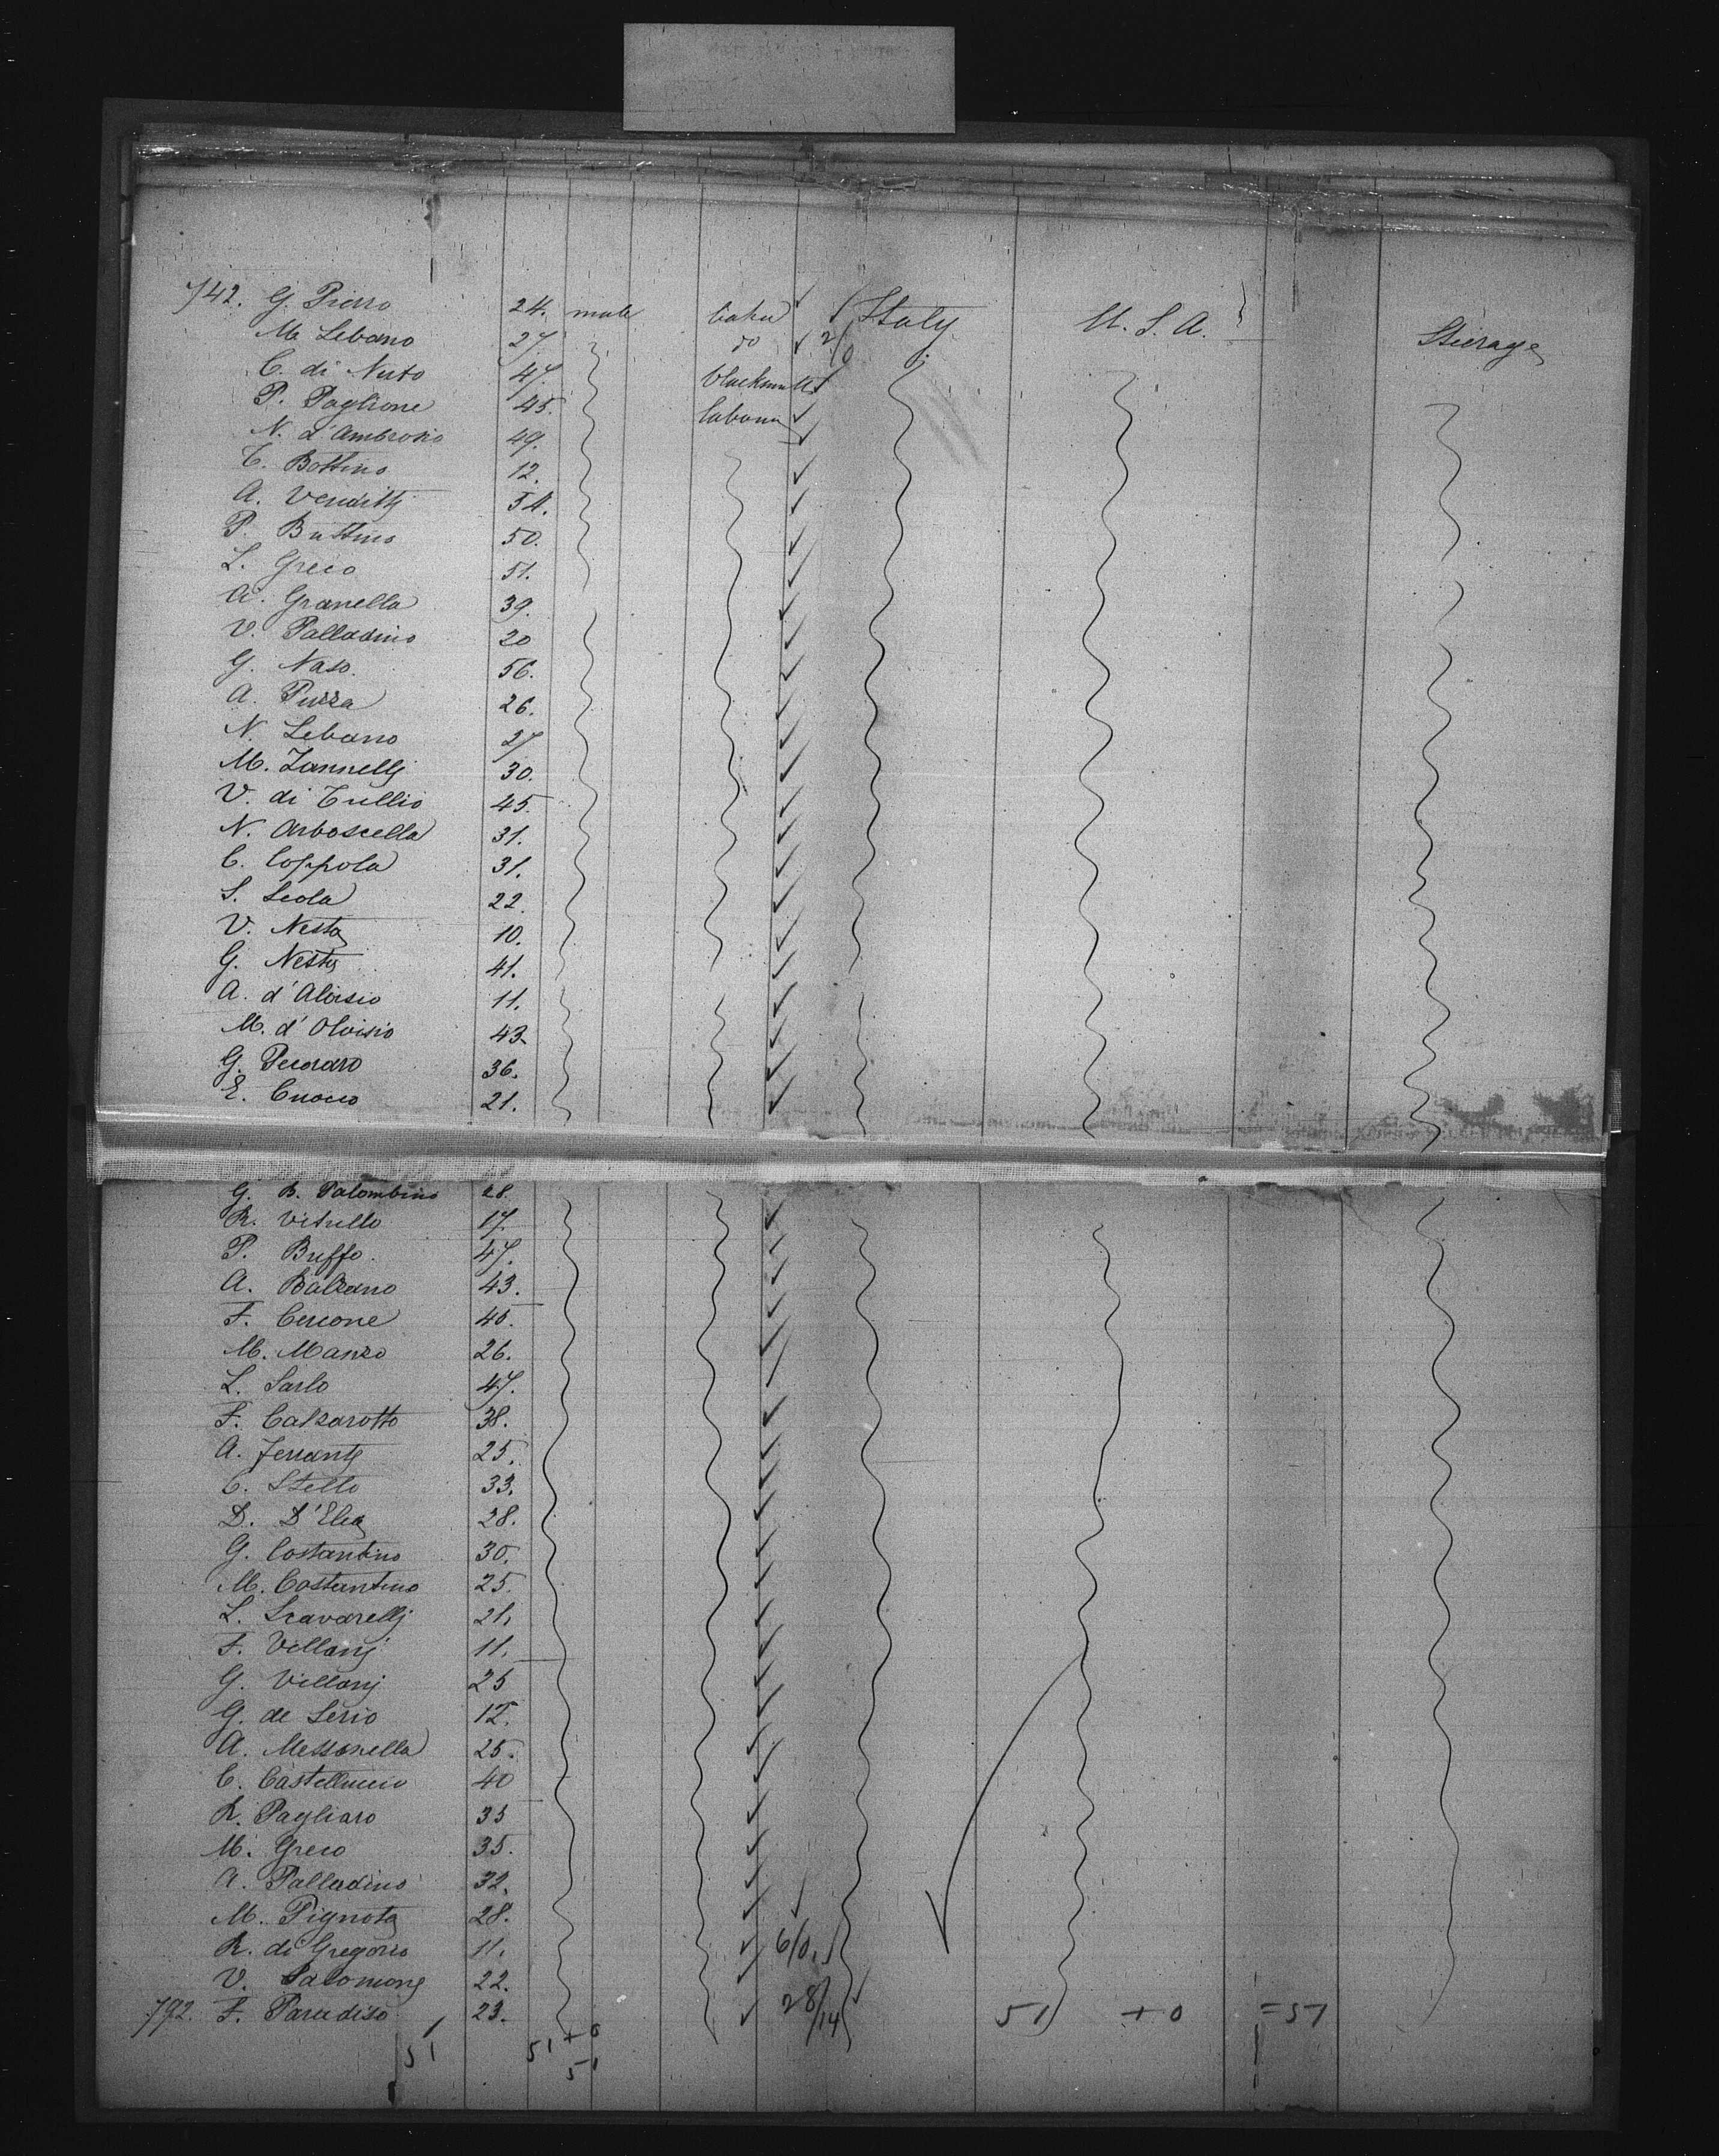 742. G. Pierro 24. male baker Italy U. S. A. Steerage
M. Lebano 27. do 2/0
C. di Nuto 47. blacksmith
P. Paglione 45. labourer
N. d'Ambrosio 49.
C. Bottino 12.
A. Venditti 54.
P. Buttino 50.
L. Greco 51.
A. Granella 39.
V. Palladino 20
G. Naso. 56.
A. 26.
N. Lebano 27
M. Zannelli 30.
V. di Tullio 45.
N. Arboscella 31.
C. Coppola 31.
S. Scola 22.
V. Nesta 10.
G. Nesta 41.
A. d'Aloisio 11.
M. d'Oloisio 43.
G. Pecoraro 36.
E. Cuoco 21.
G. B. Palombino 28.
R. Vitullo 17.
P. Buffo. 47.
A. Balzano 43.
F. Cercone 40.
M. Manzo 26.
L. Sarlo 47.
F. Calzarotto 38.
A. Ferrante 25.
C. Stello 33.
D. D'Elia 28.
G. Costantino 30.
M. Costantino 25.
L. Scavarelli 21.
F. Villani 11.
G. Villani 25
G. de Serio 12.
A. Messorella 25.
C. Castelluccio 40
R. Pagliaro 35
M. Greco 35.
A. Palladino 32.
M. Pignota 28.
R. di Gregorio 11. 6/0
V. Salomone 22.
792. F. Paradiso 23. 28/14 51 + 0 = 51
51 51 + 0
51